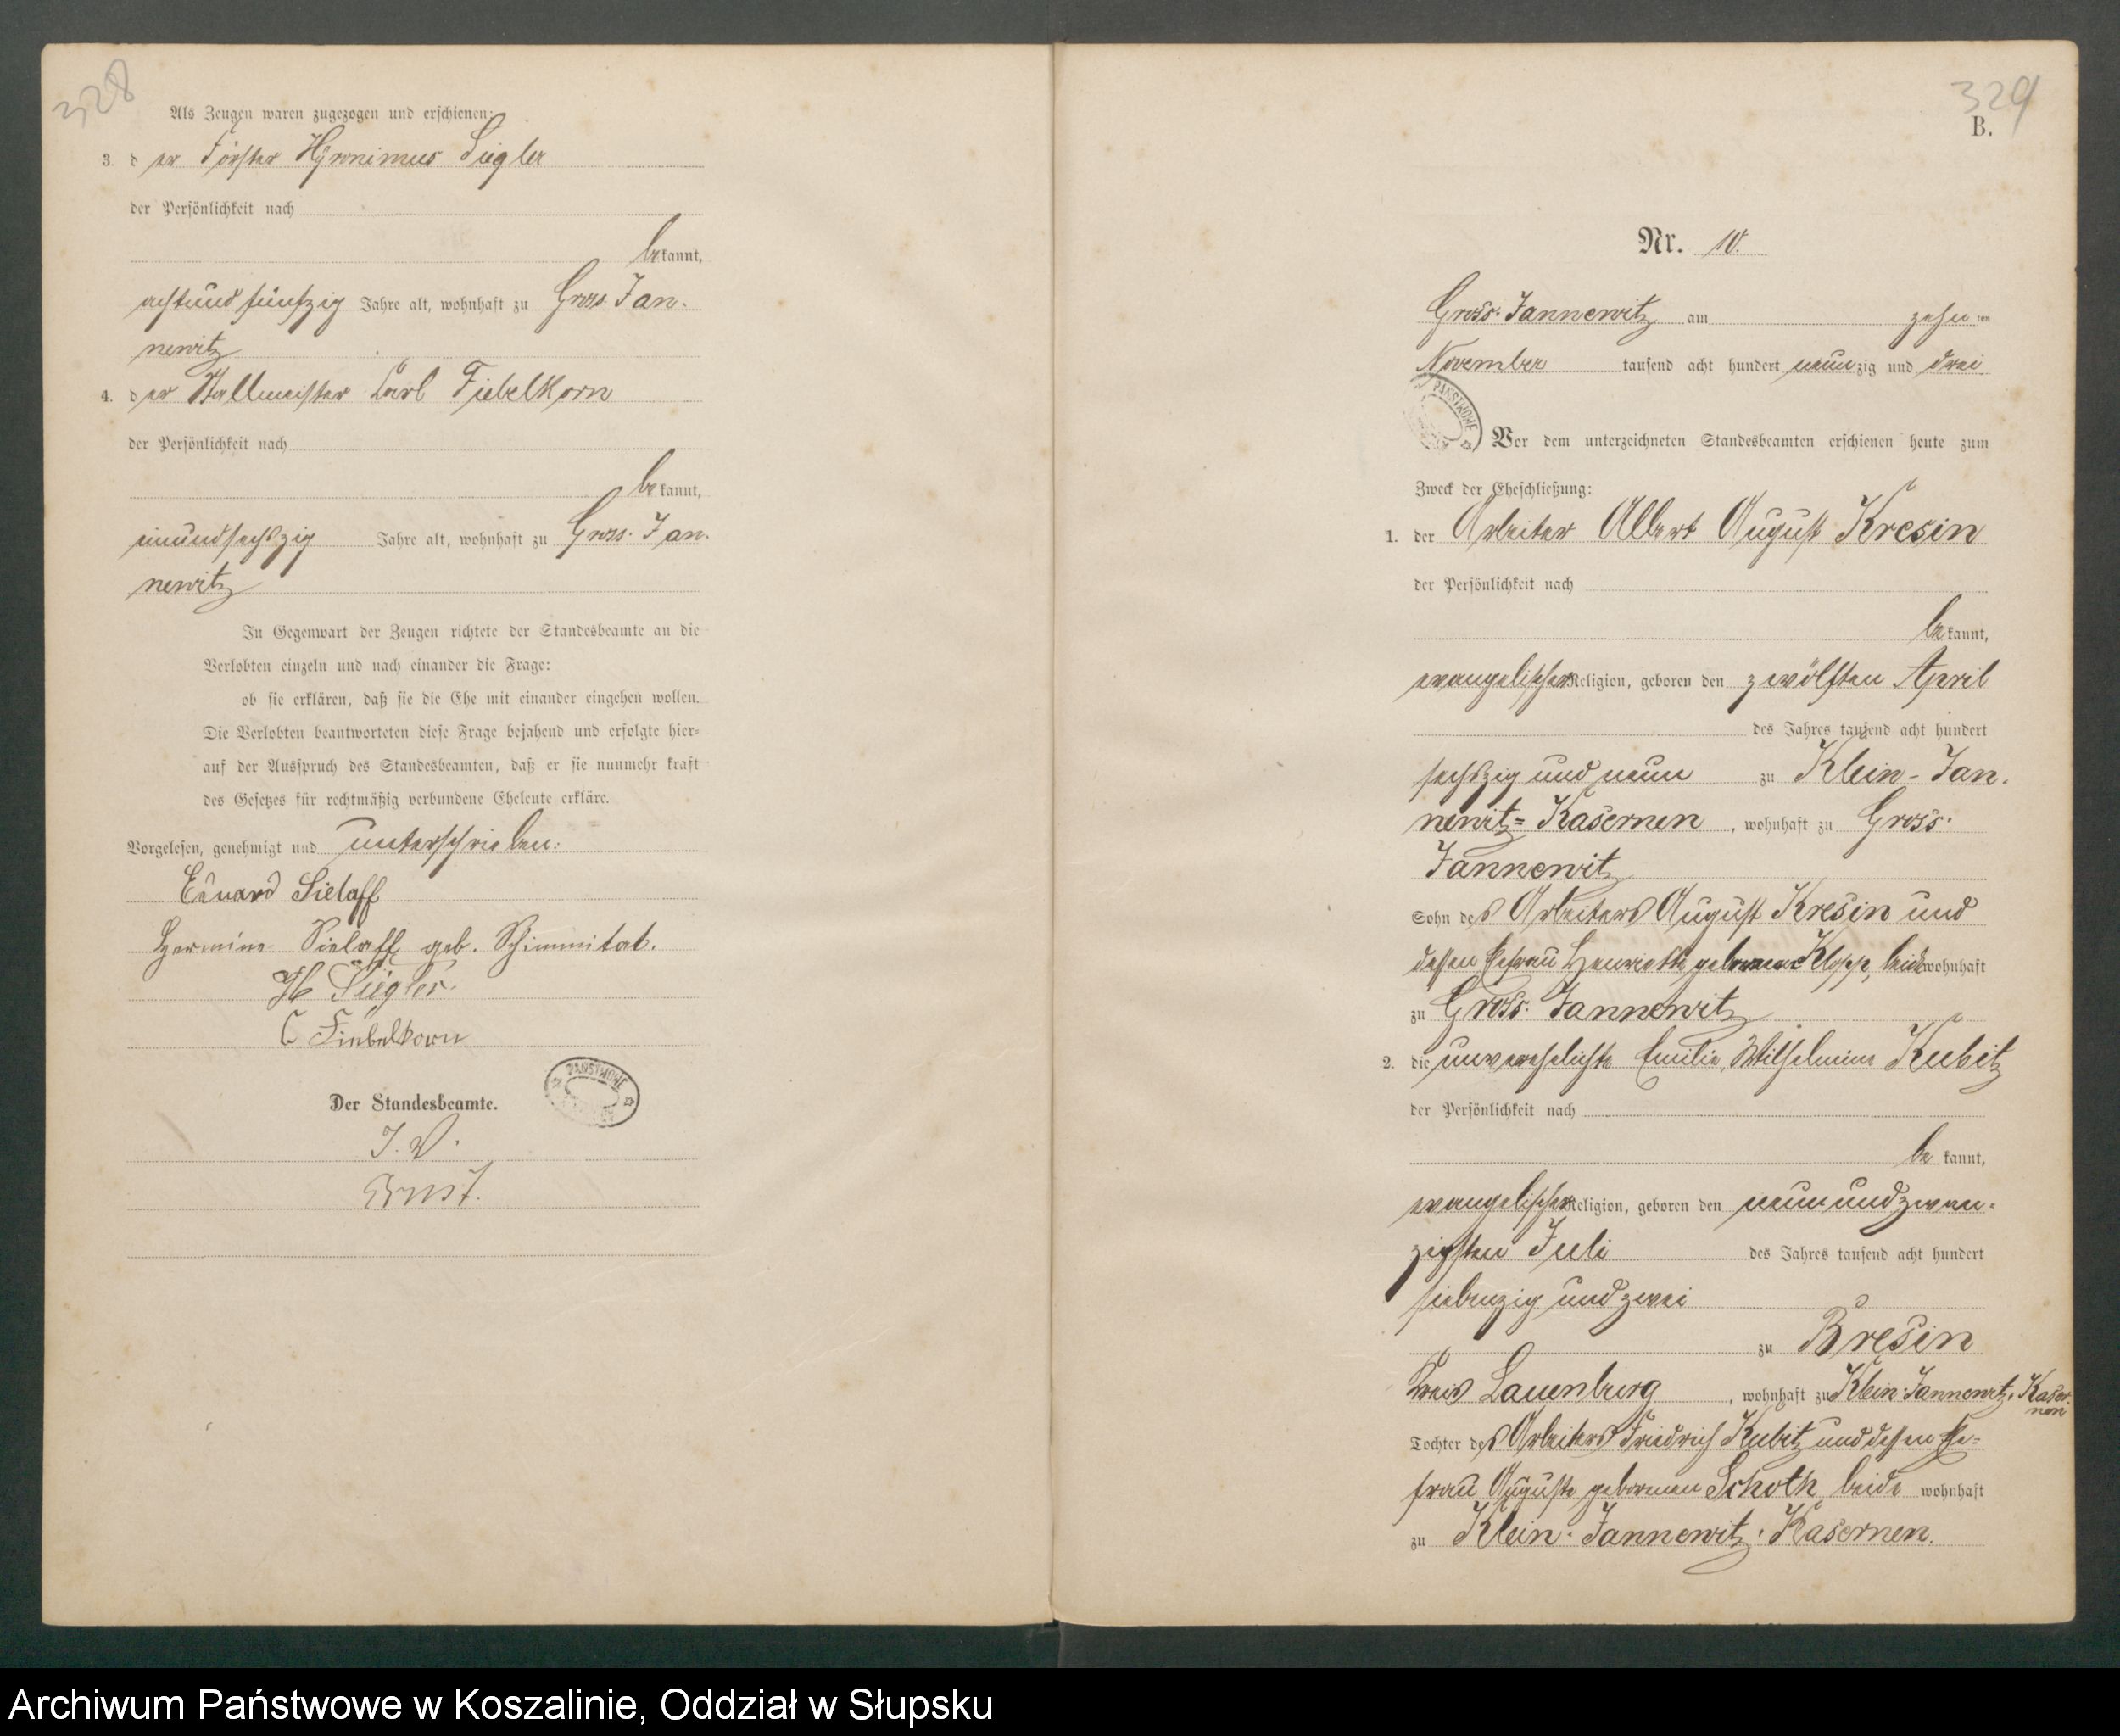 328
Als Zeugen waren zugezogen und erschienen:
3. der Förster Hyronimus Siegler
der Persönlichkeit nach
bekannt,
achtundfünfzig Jahre alt, wohnhaft zu Gross-Jan-
newitz
4. der Stallmeister Carl Fiebelkorn
der Persönlichkeit nach
bekannt,
einundsechszig Jahre alt, wohnhaft zu Gross-Jan-
newitz
In Gegenwart der Zeugen richtete der Standesbeamte an die
Verlobten einzeln und nach einander die Frage:
ob sie erklären, daß sie die Ehe mit einander eingehen wollen.
Die Verlobten beantworteten diese Frage bejahend und erfolgte hier-
auf der Ausspruch des Standesbeamten, daß er sie nunmehr kraft
des Gesetzes für rechtmäßig verbundene Eheleute erkläre.
Vorgelesen, genehmigt und unterschrieben:
Eduard Sielaff
Hermine Sielaff geb. Schimmitat.
H Siegler.
C Fiebelkorn
PAŃSTWOWE
Der Standesbeamte.
I. V.
Ernst.
329
B.
Nr. 10.
Gross-Jannewitz am zehnten
November tausend acht hundert neunzig und drei
PAŃSTWOWE
Vor dem unterzeichneten Standesbeamten erschienen heute zum
Zweck der Eheschließung:
1. der Arbeiter Albert August Kresin
der Persönlichkeit nach
bekannt,
evangelischer Religion, geboren den zwölften April
des Jahres tausend acht hundert
sechszig und neun zu Klein-Jan-
newitz-Kasernen, wohnhaft zu Gross-
Jannewitz
Sohn des Arbeiters August Kresin und
dessen Ehefrau Henriette geborenen Klopp, beide wohnhaft
zu Gross-Jannewitz
2. die unverehelichte Emilie, Wilhelmine Kubitz
der Persönlichkeit nach
bekannt,
evangelischer Religion, geboren den neunundzwan-
zigsten Juli des Jahres tausend acht hundert
siebenzig und zwei
zu Bresin
Kreis Lauenburg, wohnhaft zu Klein-Jannewitz-Kaser-
nen
Tochter des Arbeiters Friedrich Kubitz und dessen Ehe-
frau Auguste geborenen Schoth beide wohnhaft
zu Klein-Jannewitz-Kasernen.
Archiwum Państwowe w Koszalinie, Oddział w Słupsku